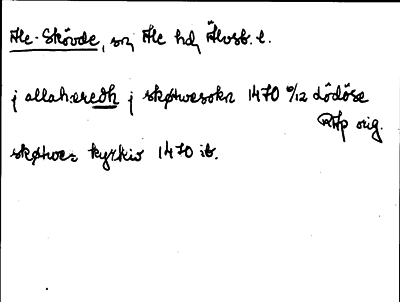 Ale-Skövde, sn, Ale hd, Älvsb. l.
j allahæredh j skøtwesokn 1470 6/12 Lödöse
RAp orig.
skøtwes kyrkio 1470 ib.